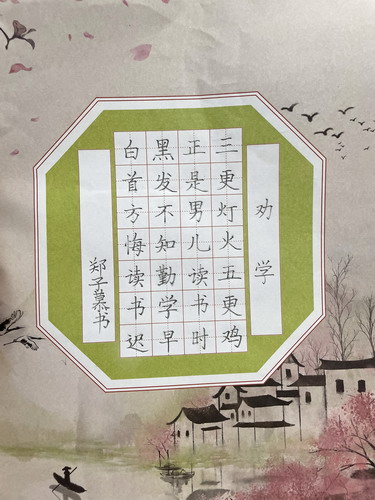 劝学
三更灯火五更鸡
正是男儿读书时
黑发不知勤学早
白首方悔读书迟
郑子慕书